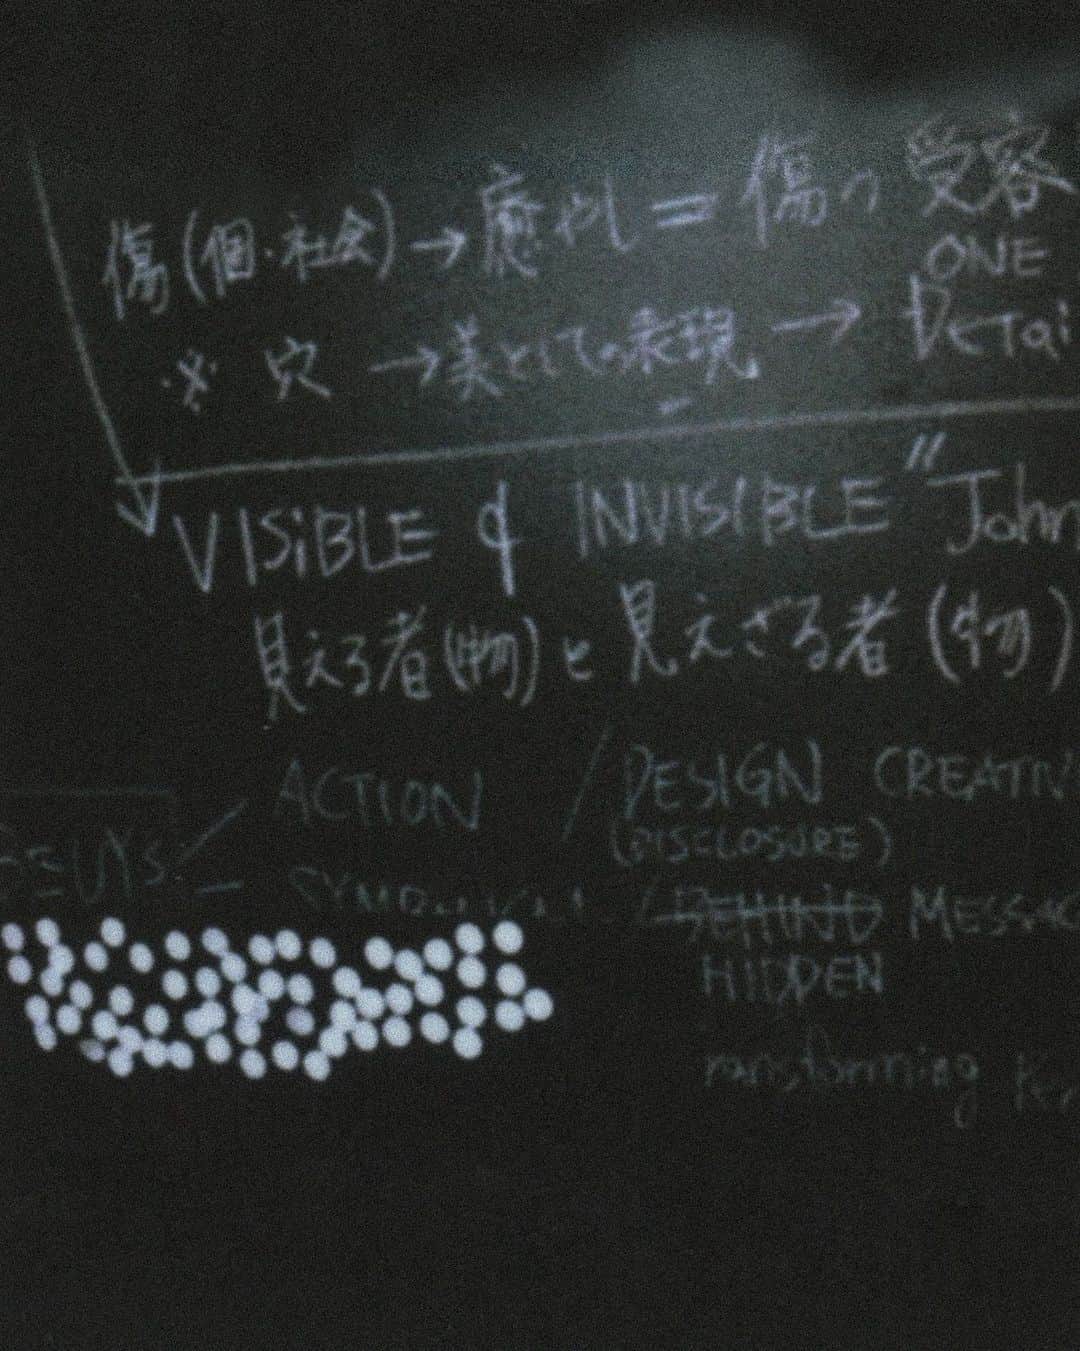 傷(個・社会)→癒やし=傷の受容
ONE
※ 穴 →美としての表現 → Detai
VISiBLE & INVISIBLE" John
見える者(物)と見えざる者(物)
ACTION / DESIGN CREATIV
(DISCLOSURE)
BEHIND MESSAG
HIDDEN
ransforming